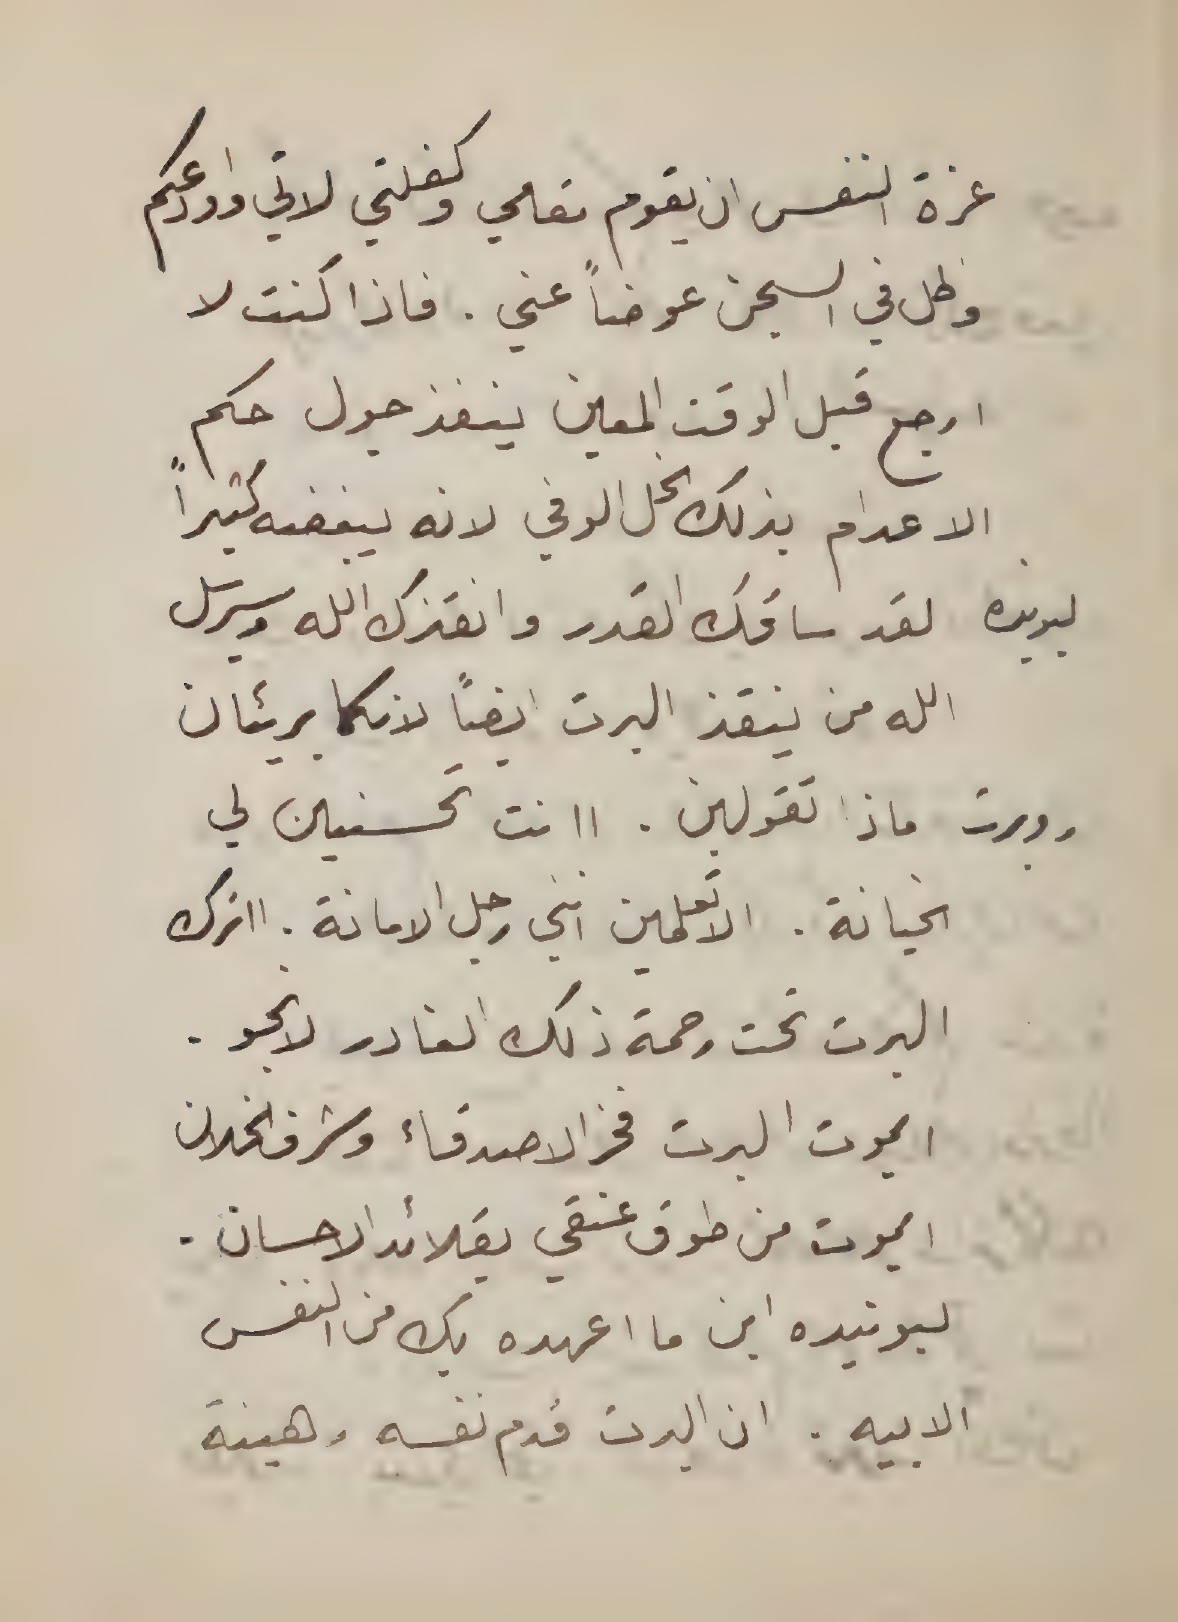 عزة النفس ان يقوم مقامي وكفلتي لاتي واودعكم
وظل في السجن عوضاً عني . فاذا كنت لا
ارجع قبل الوقت المعين ينفذ جول حكم
الاعدام بذلك الخل الوفي لانه يبغضه كثيراً
ليونيده لقد ساقك القدر وانقذك الله وسيرسل
الله من ينقذ البرت ايضاً لانكما بريئان
روبرت ماذا تقولين . اانت تحسنين لي
الخيانة . الا تعلمين انني رجل الامانة . ااترك
البرت تحت رحمة ذلك الغادر لانجو .
ايموت البرت فخر الاصدقاء وشرف الخلان
ايموت من طوق عنقي بقلائد الاحسان .
ليونيده اين ما اعهده بك من النفس
الابيه . ان البرت قدم نفسه رهينة